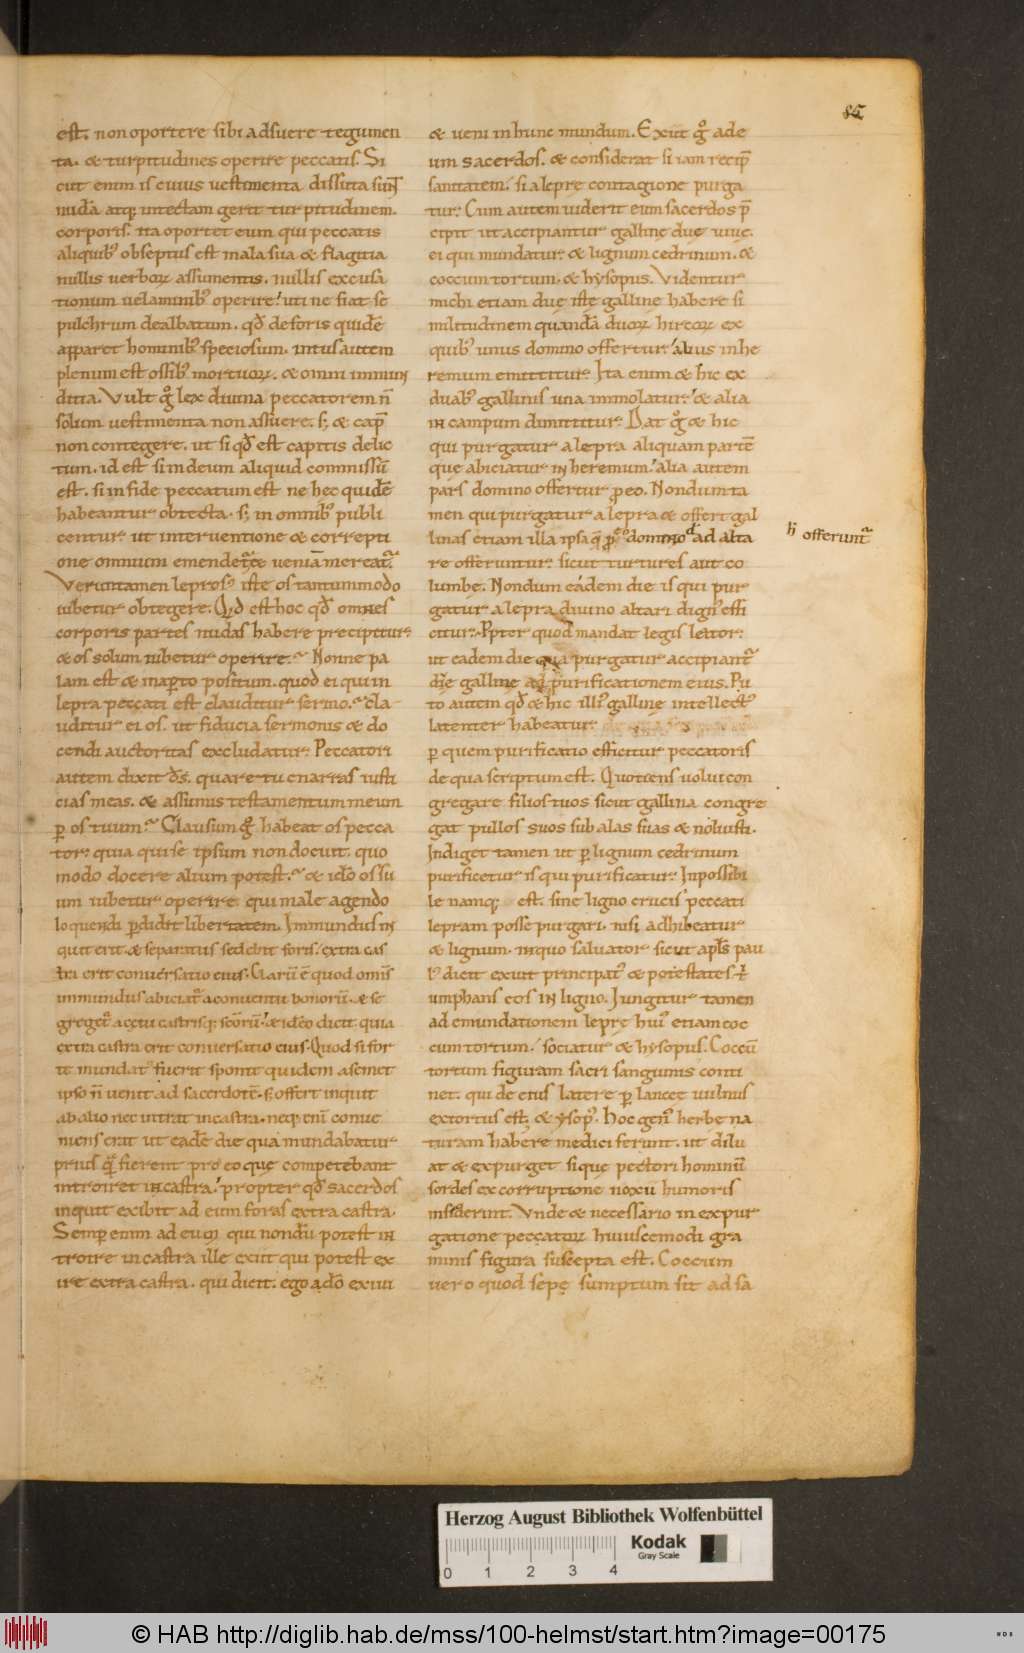 85
est. non oportere sibi adsuere tegumen
ta. & turpitudines operire peccatis. Si
cut enim is cuius uestimenta dissuta sun̄
nuda atq; intectam gerit turpitudinem.
corporis. ita oportet eum qui peccatis
aliquib; obseptus est mala sua & flagitia
nullis uerboꝝ assumentis. nullis excusa
tionum uelaminib; operire. uti ne fiat se
pulchrum dealbatum. qđ deforis quidē
apparet hominib; speciosum. intus autem
plenum est ossib; mortuoꝝ. & omni immun
ditia. Vult gͦ lex diuina peccatorem n̄
solum uestimenta non assuere. s; & cap̄
non contegere. ut si qđ est capitis delic
tum. id est si in deum aliquid commissū
est. si in fide peccatum est ne hec quidē
habeantur obtecta. s; in omnib; publi
centur ut interuentione & correpti
one omnium emendetᷣ & ueniā mereatᷣ.
Veruntamen lepros; iste os tantummodo
iubetur obtegere. Qđ est hoc qđ omnes
corporis partes nudas habere precipitur
& os solum iubetur operire. Nonne pa
lam est & in apto positum. quod ei qui in
lepra peccati est clauditur sermo. Cla
uditur ei os. ut fiducia sermonis & do
cendi auctoritas excludatur. Peccatori
autem dixit d̄s. quare tu enarras iusti
cias meas. & assumis testamentum meum
ꝑ os tuum. Clausum gͦ habeat os pecca
tor. quia qui se ipsum non docuit. quo
modo docere alium potest. & ideo os su
um iubetur operire qui male agendo
loquendi ꝑdidit libertatem. Immundus in
quit erit. & separatus sedebit foris. extra cas
tra erit conuersatio eius. Clarū ē quod omīs
immundus abiciatᷣ a conuentu bonorū. & se
gregetᷣ a cetu castrisq; scōrū. & ideo dicit quia
extra castra erit conuersatio eius. Quod si for
te mundatᷣ fuerit sponte quidem a semet
ipso n̄ uenit ad sacerdotē. s; offert inquit
ab alio nec intrat in castra. neq; enī conue
niens erat ut eadē die qua mundabatur
prius qͣ fierent pro eo que competebant
introiret in castra. propter qđ sacerdos
inquit exibit ad eum foras extra castra.
Semper enim ad eum qui nondū potest in
troire in castra ille exiit qui potest ex
ire extra castra. qui dicit. ego a dō exiui
& ueni in hunc mundum. Exiit gͦ ad e
um sacerdos. & considerat si iam recip̄
sanitatem. si a lepre contagione purga
tur. Cum autem uiderit eum sacerdos p̄
cipit ut accipiantur galline due uiue.
ei qui mundatur & lignum cedrinum. &
coccum tortum. & hysopus. Videntur
michi etiam due iste galline habere si
militudinem quandā duoꝝ hircoꝝ ex
quib; unus domino offertur. alius in he
remum emittitur. Ita enim & hic ex
duab; gallinis una immolatur. & alia
in campum dimittitur. Dat gͦ & hic
qui purgatur a lepra aliquam partē
que abiciatur in heremum. alia autem
pars domino offertur pro eo. Nondum ta
men qui purgatur a lepra & offert gal
linas etiam illa ipsa domino ad alta
h offeruntᷣ
re offeruntur sicut turtures aut co
lumbe. Nondum eadem die is qui pur
gatur a lepra diuino altari dign; effi
citur. Ppter quod mandat legis lector.
ut eadem die qua purgatur accipiantᷣ
due galline ad purificationem eius. Pu
to autem qđ & hic galline intellect;
latenter habeatur
ꝑ quem purificatio efficitur peccatoris
de qua scriptum est. Quotiens uolui con
gregare filios tuos sicut gallina congre
gat pullos suos sub alas suas & noluisti.
Indiget tamen ut ꝑ lignum cedrinum
purificetur is qui purificatur. Inpossibi
le namq; est. sine ligno crucis peccati
lepram posse purgari. nisi adhibeatur
& lignum. in quo saluator sicut apl̄s pau
l; dicit exuit principat; & potestates t̄
umphans eos in ligno. Jungitur tamen
ad emundationem lepre hui; etiam coc
cum tortum. sociatur & hysopus. Coccū
tortum figuram sacri sanguinis conti
net. qui de eius latere ꝑ lancee uulnus
extortus est. & ysop; Hoc gen; herbe na
turam habere medici ferunt. ut dilu
at & expurget sique pectori hominū
sordes ex corruptione noxii humoris
insederint. Vnde & necessario in expur
gatione peccatoꝝ huiuscemodi gra
minis figura suscepta est. Coccum
uero quod sepe sumptum sit ad sa
Herzog August Bibliothek Wolfenbüttel
Kodak
Gray Scale
0 1 2 3 4
© HAB http://diglib.hab.de/mss/100-helmst/start.htm?image=00175